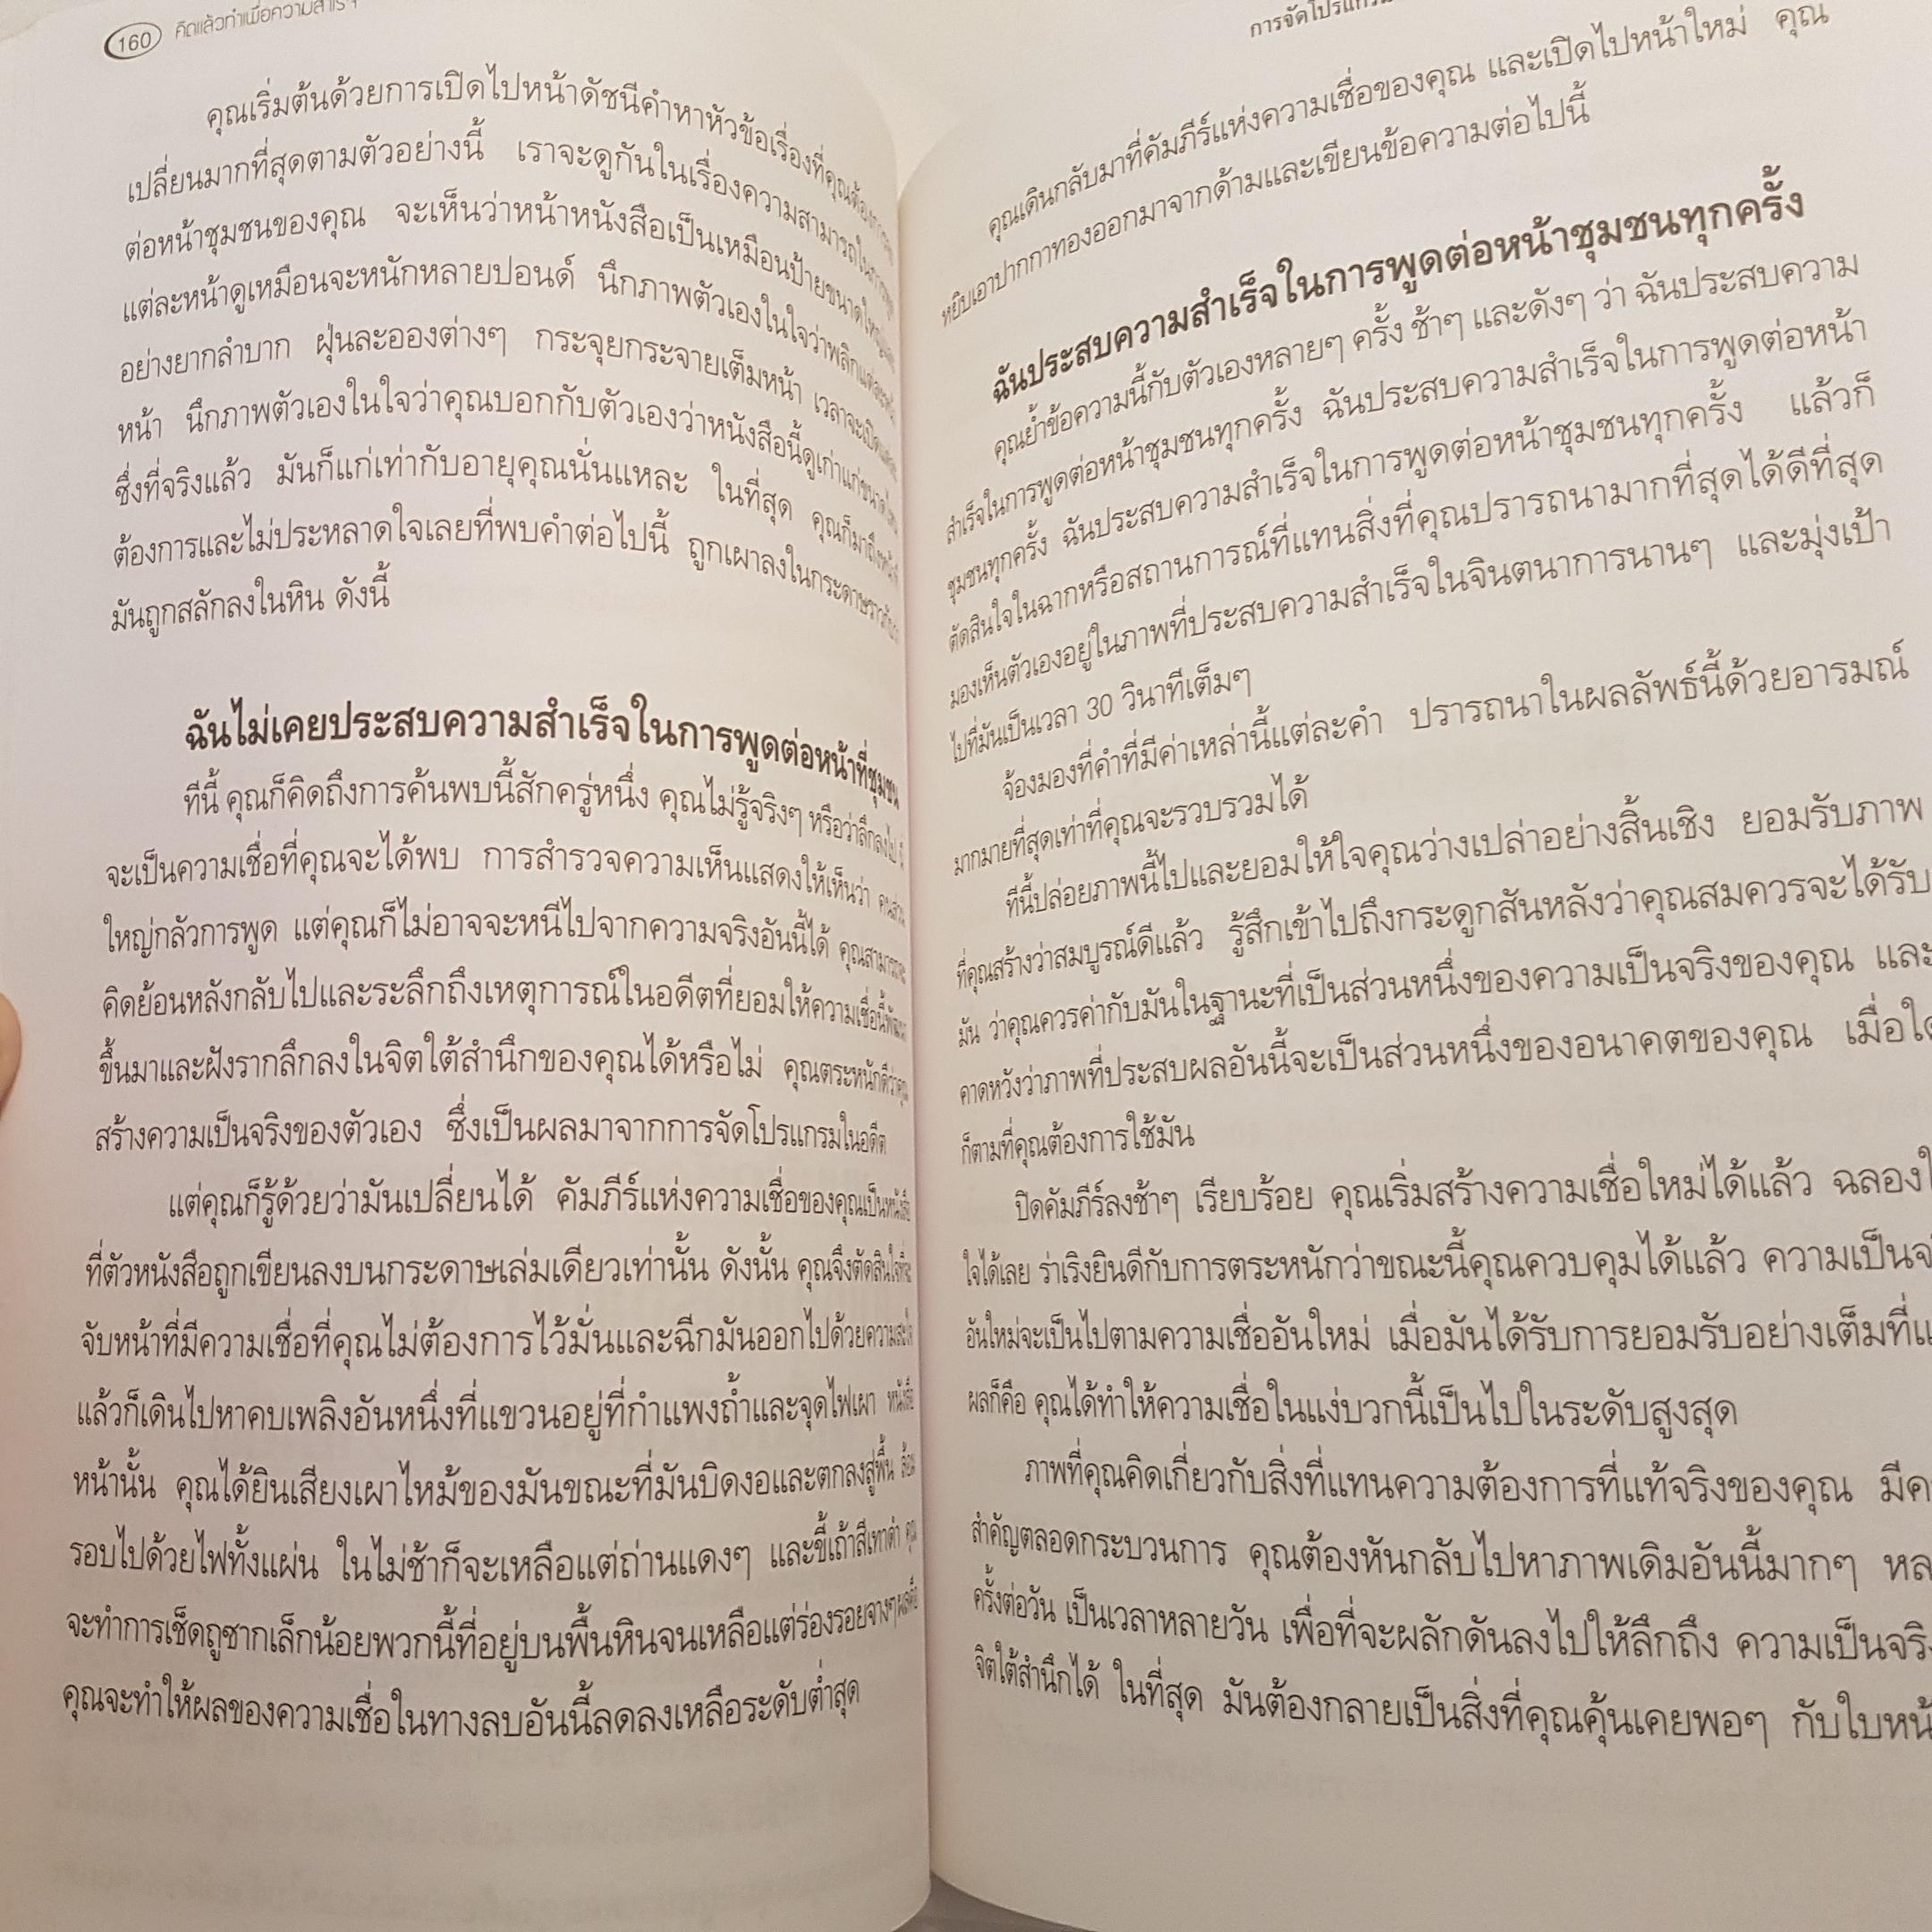 160 คิดแล้วทำเพื่อความสำเร็จ
คุณเริ่มต้นด้วยการเปิดไปหน้าดัชนีคำหาหัวข้อเรื่องที่คุณต้องการจะ
เปลี่ยนมากที่สุดตามตัวอย่างนี้ เราจะดูกันในเรื่องความสามารถในการพูด
ต่อหน้าชุมชนของคุณ จะเห็นว่าหน้าหนังสือเป็นเหมือนป้ายขนาดใหญ่
แต่ละหน้าดูเหมือนจะหนักหลายปอนด์ นึกภาพตัวเองในใจว่าพลิกแต่ละหน้า
อย่างยากลำบาก ฝุ่นละอองต่างๆ กระจุยกระจายเต็มหน้า เวลาจะเปิดแต่ละ
หน้า นึกภาพตัวเองในใจว่าคุณบอกกับตัวเองว่าหนังสือนี้ดูเก่าแก่ขนาดไหน
ซึ่งที่จริงแล้ว มันก็แก่เท่ากับอายุคุณนั่นแหละ ในที่สุด คุณก็มาถึงหน้าที่
ต้องการและไม่ประหลาดใจเลยที่พบคำต่อไปนี้ ถูกเผาลงในกระดาษราวกับว่า
มันถูกสลักลงในหิน ดังนี้
ฉันไม่เคยประสบความสำเร็จในการพูดต่อหน้าที่ชุมชน
ทีนี้ คุณก็คิดถึงการค้นพบนี้สักครู่หนึ่ง คุณไม่รู้จริงๆ หรือว่าลึกลงไป นี่
จะเป็นความเชื่อที่คุณจะได้พบ การสำรวจความเห็นแสดงให้เห็นว่า คนส่วน
ใหญ่กลัวการพูด แต่คุณก็ไม่อาจจะหนีไปจากความจริงอันนี้ได้ คุณสามารถจะ
คิดย้อนหลังกลับไปและระลึกถึงเหตุการณ์ในอดีตที่ยอมให้ความเชื่อนี้พัฒนา
ขึ้นมาและฝังรากลึกลงในจิตใต้สำนึกของคุณได้หรือไม่ คุณตระหนักดีว่าคุณ
สร้างความเป็นจริงของตัวเอง ซึ่งเป็นผลมาจากการจัดโปรแกรมในอดีต
แต่คุณก็รู้ด้วยว่ามันเปลี่ยนได้ คัมภีร์แห่งความเชื่อของคุณเป็นหนังสือ
ที่ตัวหนังสือถูกเขียนลงบนกระดาษเล่มเดียวเท่านั้น ดังนั้น คุณจึงตัดสินใจที่จะ
จับหน้าที่มีความเชื่อที่คุณไม่ต้องการไว้มั่นและฉีกมันออกไปด้วยความสะใจ
แล้วก็เดินไปหาคบเพลิงอันหนึ่งที่แขวนอยู่ที่กำแพงถ้ำและจุดไฟเผา หนังสือ
หน้านั้น คุณได้ยินเสียงเผาไหม้ของมันขณะที่มันบิดงอและตกลงสู่พื้น ล้อม
รอบไปด้วยไฟทั้งแผ่น ในไม่ช้าก็จะเหลือแต่ถ่านแดงๆ และขี้เถ้าสีเทาดำ คุณ
จะทำการเช็ดถูซากเล็กน้อยพวกนี้ที่อยู่บนพื้นหินจนเหลือแต่ร่องรอยจางๆ ผลก็คือ
คุณจะทำให้ผลของความเชื่อในทางลบอันนี้ลดลงเหลือระดับต่ำสุด
การจัดโปรแกรม
คุณเดินกลับมาที่คัมภีร์แห่งความเชื่อของคุณ และเปิดไปหน้าใหม่ คุณ
หยิบเอาปากกาทองออกมาจากด้ามและเขียนข้อความต่อไปนี้
ฉันประสบความสำเร็จในการพูดต่อหน้าชุมชนทุกครั้ง
คุณย้ำข้อความนี้กับตัวเองหลายๆ ครั้ง ช้าๆ และดังๆ ว่า ฉันประสบความ
สำเร็จในการพูดต่อหน้าชุมชนทุกครั้ง ฉันประสบความสำเร็จในการพูดต่อหน้า
ชุมชนทุกครั้ง ฉันประสบความสำเร็จในการพูดต่อหน้าชุมชนทุกครั้ง แล้วก็
ตัดสินใจในฉากหรือสถานการณ์ที่แทนสิ่งที่คุณปรารถนามากที่สุดได้ดีที่สุด
มองเห็นตัวเองอยู่ในภาพที่ประสบความสำเร็จในจินตนาการนานๆ และมุ่งเป้า
ไปที่มันเป็นเวลา 30 วินาทีเต็มๆ
จ้องมองที่คำที่มีค่าเหล่านี้แต่ละคำ ปรารถนาในผลลัพธ์นี้ด้วยอารมณ์
มากมายที่สุดเท่าที่คุณจะรวบรวมได้
ทีนี้ปล่อยภาพนี้ไปและยอมให้ใจคุณว่างเปล่าอย่างสิ้นเชิง ยอมรับภาพ
ที่คุณสร้างว่าสมบูรณ์ดีแล้ว รู้สึกเข้าไปถึงกระดูกสันหลังว่าคุณสมควรจะได้รับ
มัน ว่าคุณควรค่ากับมันในฐานะที่เป็นส่วนหนึ่งของความเป็นจริงของคุณ และ
คาดหวังว่าภาพที่ประสบผลอันนี้จะเป็นส่วนหนึ่งของอนาคตของคุณ เมื่อใด
ก็ตามที่คุณต้องการใช้มัน
ปิดคัมภีร์ลงช้าๆ เรียบร้อย คุณเริ่มสร้างความเชื่อใหม่ได้แล้ว ฉลองใ
ใจได้เลย ร่าเริงยินดีกับการตระหนักว่าขณะนี้คุณควบคุมได้แล้ว ความเป็นจ
อันใหม่จะเป็นไปตามความเชื่ออันใหม่ เมื่อมันได้รับการยอมรับอย่างเต็มที่แ
ผลก็คือ คุณได้ทำให้ความเชื่อในแง่บวกนี้เป็นไปในระดับสูงสุด
ภาพที่คุณคิดเกี่ยวกับสิ่งที่แทนความต้องการที่แท้จริงของคุณ มีค
สำคัญตลอดกระบวนการ คุณต้องหันกลับไปหาภาพเดิมอันนี้มากๆ หล
ครั้งต่อวัน เป็นเวลาหลายวัน เพื่อที่จะผลักดันลงไปให้ลึกถึง ความเป็นจริง
จิตใต้สำนึกได้ ในที่สุด มันต้องกลายเป็นสิ่งที่คุณคุ้นเคยพอๆ กับใบหน้